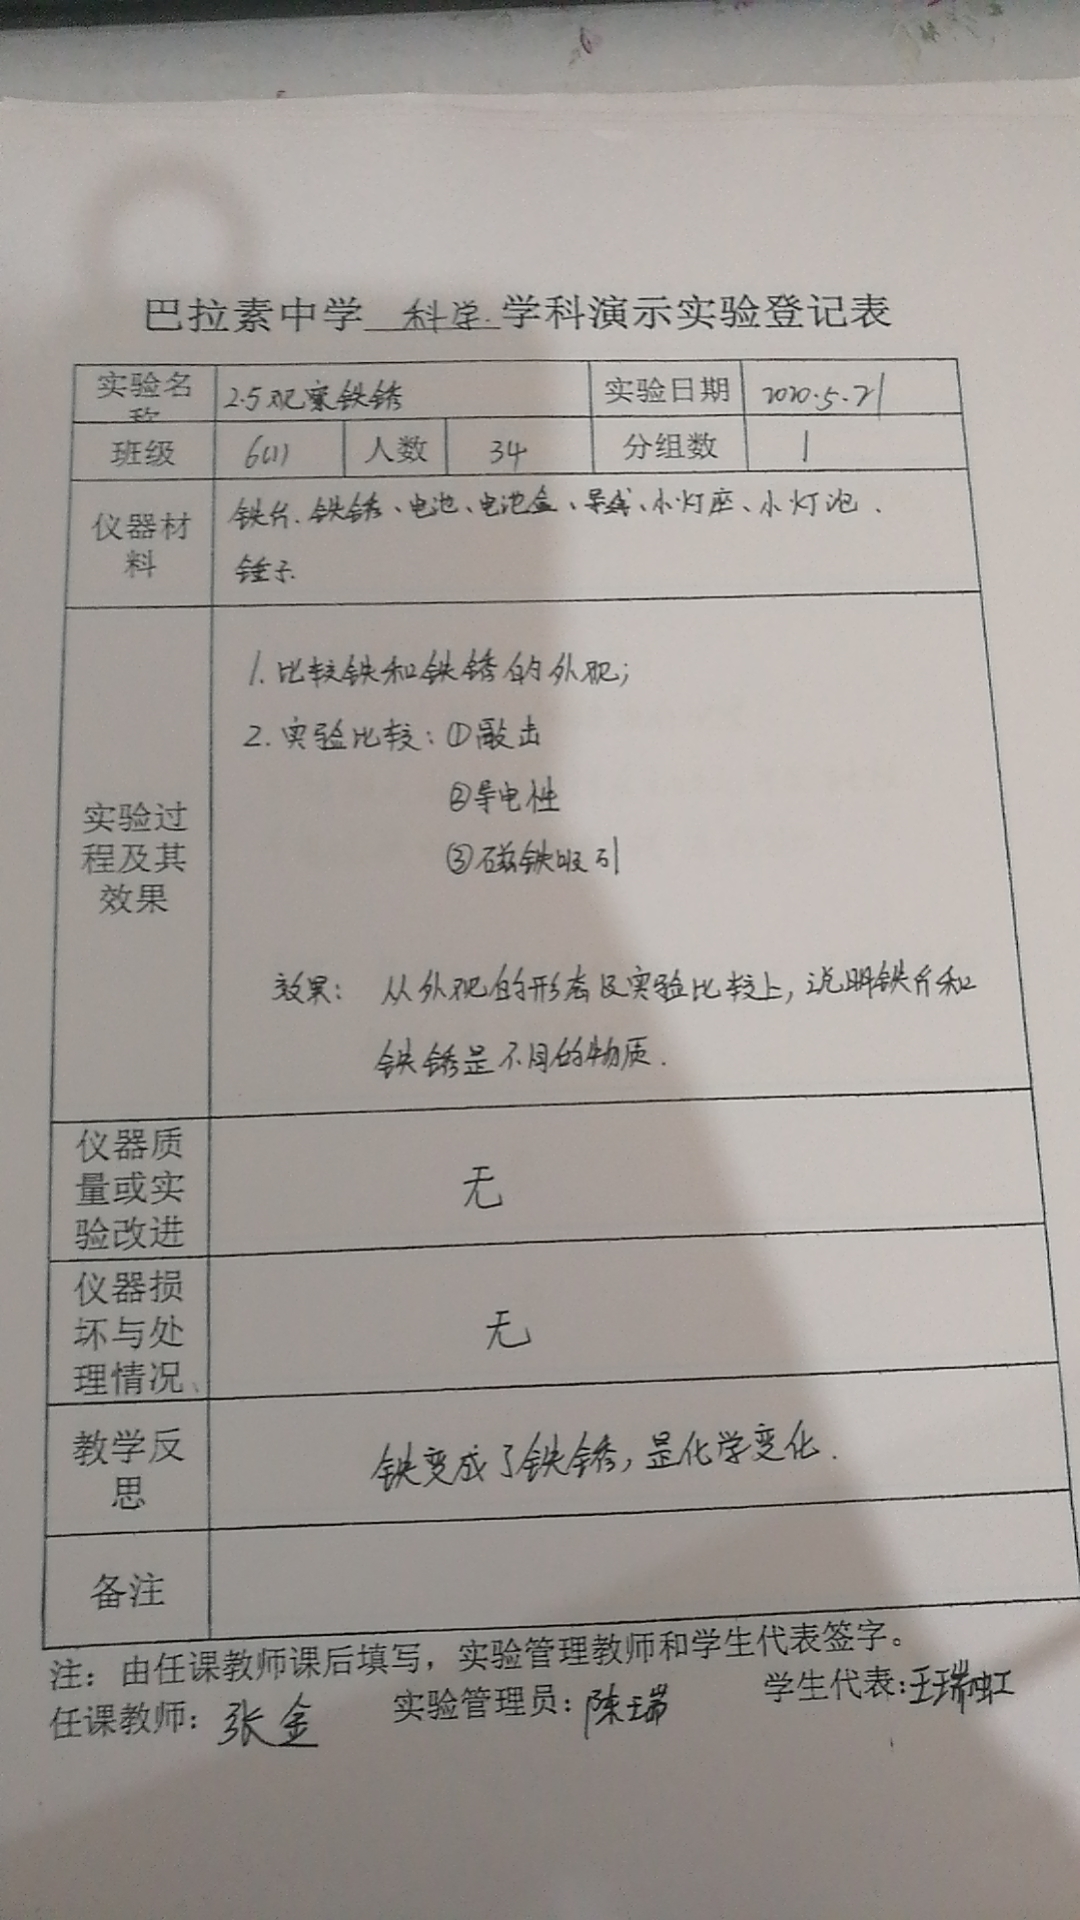 巴拉素中学 科学 学科演示实验登记表
实验名称 2.5观察铁锈 实验日期 2020.5.21
班级 6(1) 人数 34 分组数 1
仪器材料 铁片、铁锈、电池、电池盒、导线、小灯座、小灯泡、
锤子
实验过程及其效果
1.比较铁和铁锈的外观;
2.实验比较:①敲击
②导电性
③磁铁吸引
效果: 从外观的形态及实验比较上,说明铁片和
铁锈是不同的物质.
仪器质量或实验改进 无
仪器损坏与处理情况、 无
教学反思 铁变成了铁锈,是化学变化.
备注
注:由任课教师课后填写,实验管理教师和学生代表签字。
任课教师:张金 实验管理员:陈瑞 学生代表:王瑞虹